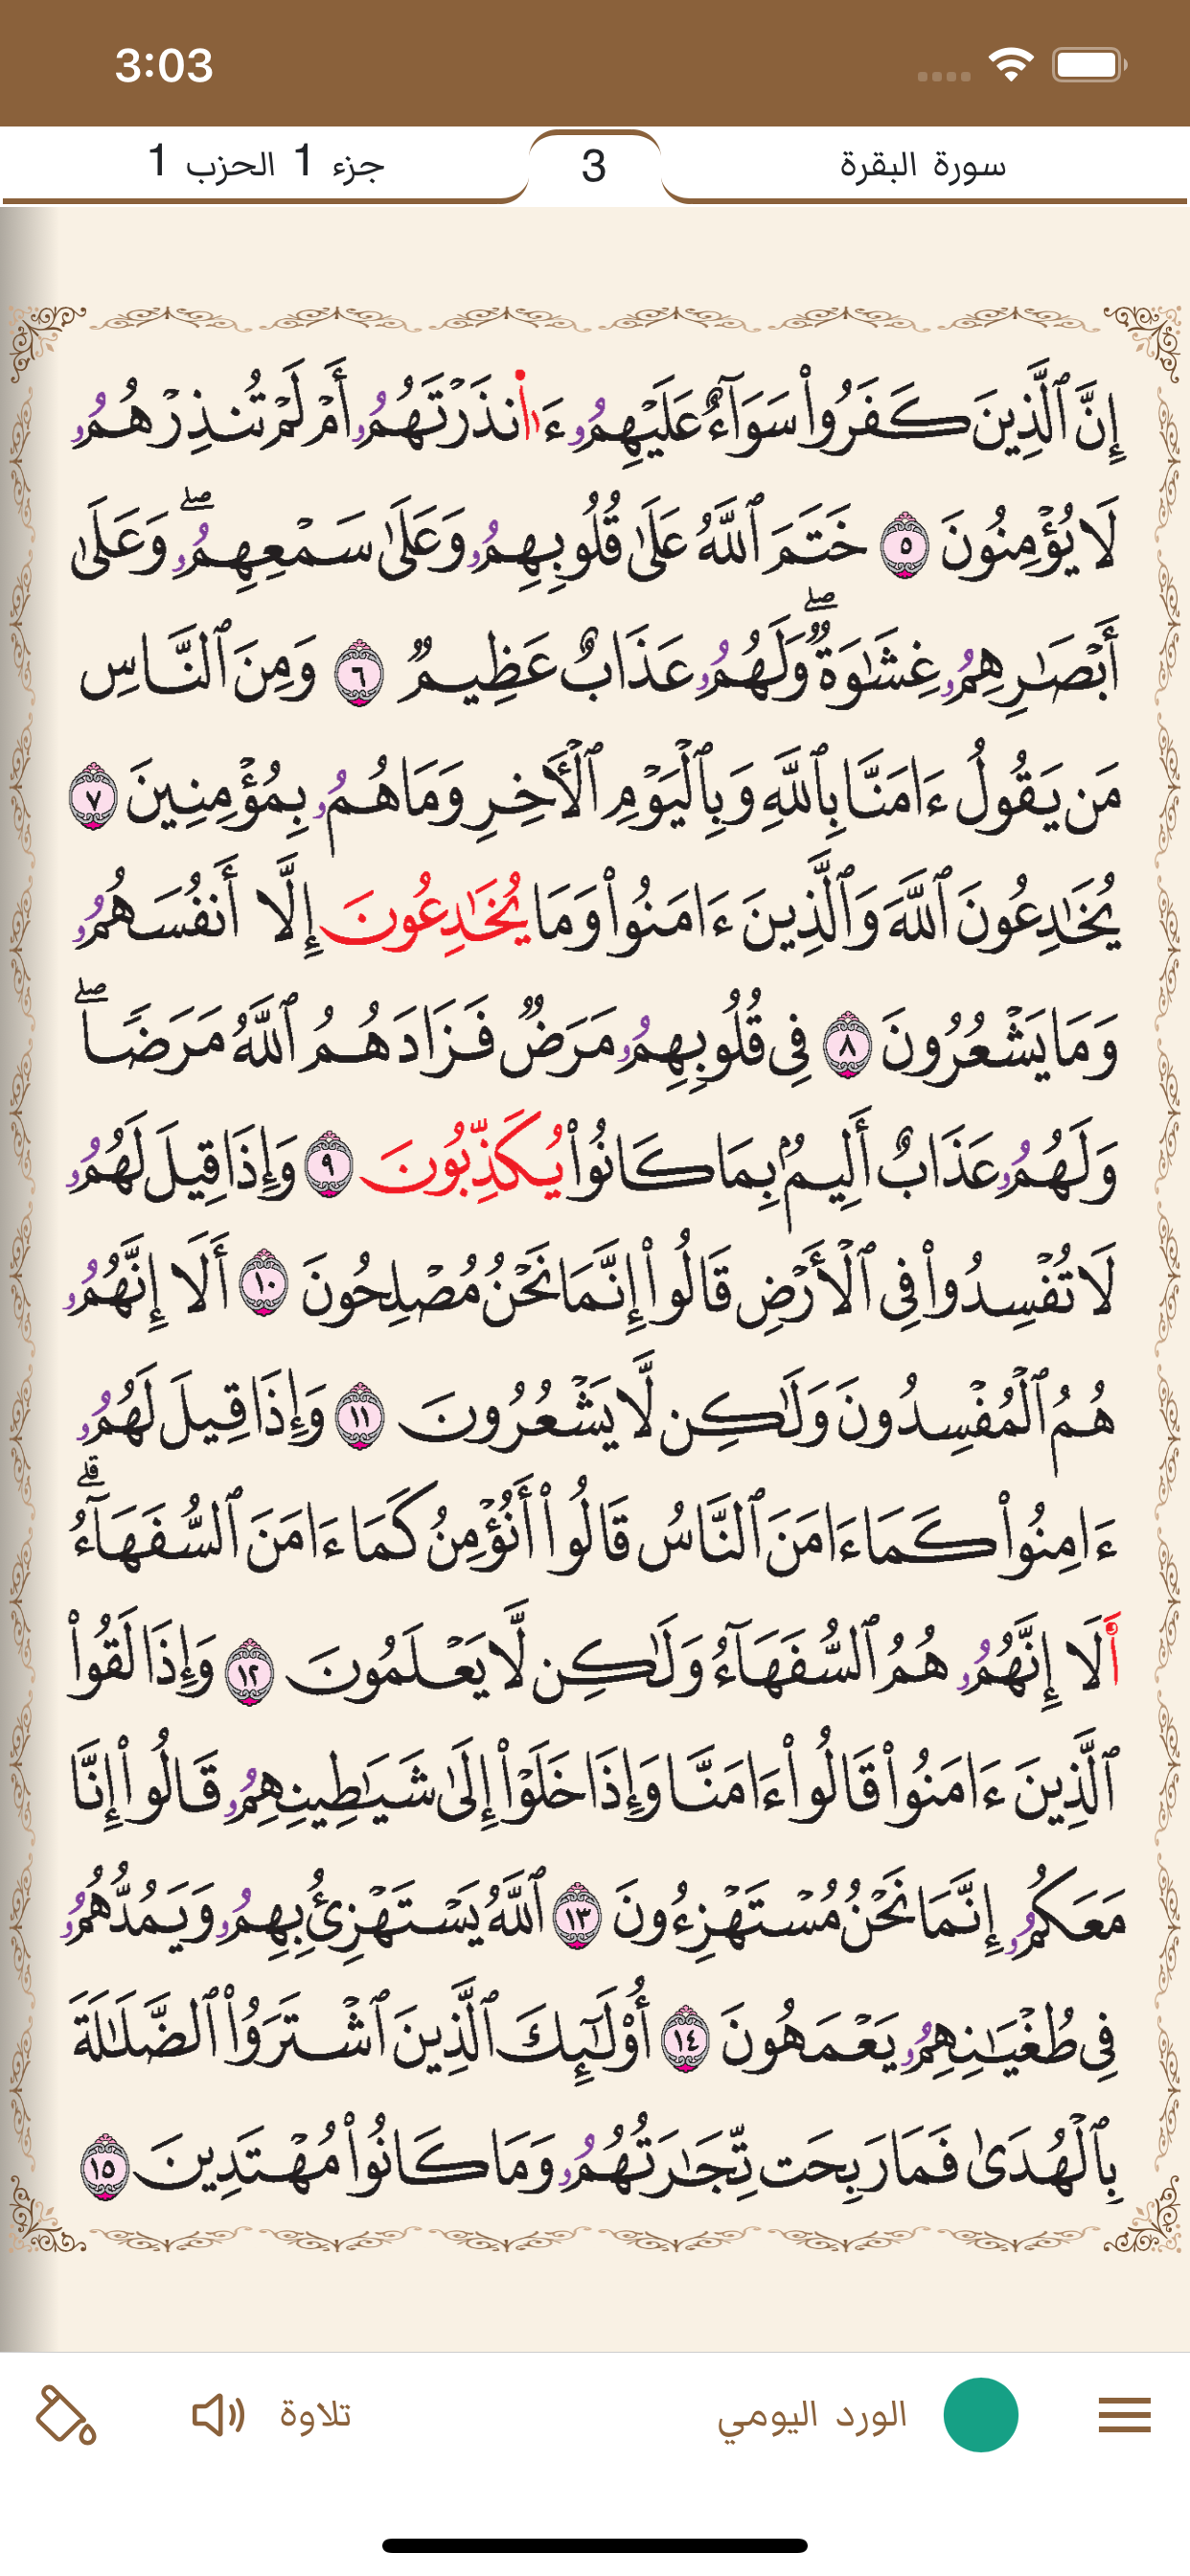 3:03
سورة البقرة
3
جزء 1 الحزب 1
إِنَّ ٱلَّذِينَ كَفَرُواْ سَوَآءٌ عَلَيْهِمُۥ ءَا۬نذَرْتَهُمُۥ أَمْ لَمْ تُنذِرْهُمُۥ
لَا يُؤْمِنُونَ ٥ خَتَمَ ٱللَّهُ عَلَىٰ قُلُوبِهِمُۥ وَعَلَىٰ سَمْعِهِمُۥۖ وَعَلَىٰ
أَبْصَٰرِهِمُۥ غِشَٰوَةٞۖ وَلَهُمُۥ عَذَابٌ عَظِيمٞ ٦ وَمِنَ ٱلنَّاسِ
مَن يَقُولُ ءَامَنَّا بِٱللَّهِ وَبِٱلْيَوْمِ ٱلْأَخِرِ وَمَا هُمُۥ بِمُؤْمِنِينَ ٧
يُخَٰدِعُونَ ٱللَّهَ وَٱلَّذِينَ ءَامَنُواْ وَمَا يُخَٰدِعُونَ إِلَّا أَنفُسَهُمُۥ
وَمَا يَشْعُرُونَ ٨ فِي قُلُوبِهِمُۥ مَرَضٞ فَزَادَهُمُ ٱللَّهُ مَرَضٗاۖ
وَلَهُمُۥ عَذَابٌ أَلِيمُۢ بِمَا كَانُواْ يُكَذِّبُونَ ٩ وَإِذَا قِيلَ لَهُمُۥ
لَا تُفْسِدُواْ فِي ٱلْأَرْضِ قَالُواْ إِنَّمَا نَحْنُ مُصْلِحُونَ ١٠ أَلَا إِنَّهُمُۥ
هُمُ ٱلْمُفْسِدُونَ وَلَٰكِن لَّا يَشْعُرُونَ ١١ وَإِذَا قِيلَ لَهُمُۥ
ءَامِنُواْ كَمَا ءَامَنَ ٱلنَّاسُ قَالُواْ أَنُؤْمِنُ كَمَا ءَامَنَ ٱلسُّفَهَآءُۗ
أَلَا إِنَّهُمُۥ هُمُ ٱلسُّفَهَآءُ وَلَٰكِن لَّا يَعْلَمُونَ ١٢ وَإِذَا لَقُواْ
ٱلَّذِينَ ءَامَنُواْ قَالُواْ ءَامَنَّا وَإِذَا خَلَوْاْ إِلَىٰ شَيَٰطِينِهِمُۥ قَالُواْ إِنَّا
مَعَكُمُۥ إِنَّمَا نَحْنُ مُسْتَهْزِءُونَ ١٣ ٱللَّهُ يَسْتَهْزِئُ بِهِمُۥ وَيَمُدُّهُمُۥ
فِي طُغْيَٰنِهِمُۥ يَعْمَهُونَ ١٤ أُوْلَٰٓئِكَ ٱلَّذِينَ ٱشْتَرَوُاْ ٱلضَّلَٰلَةَ
بِٱلْهُدَىٰ فَمَا رَبِحَت تِّجَٰرَتُهُمُۥ وَمَا كَانُواْ مُهْتَدِينَ ١٥
الورد اليومي
تلاوة